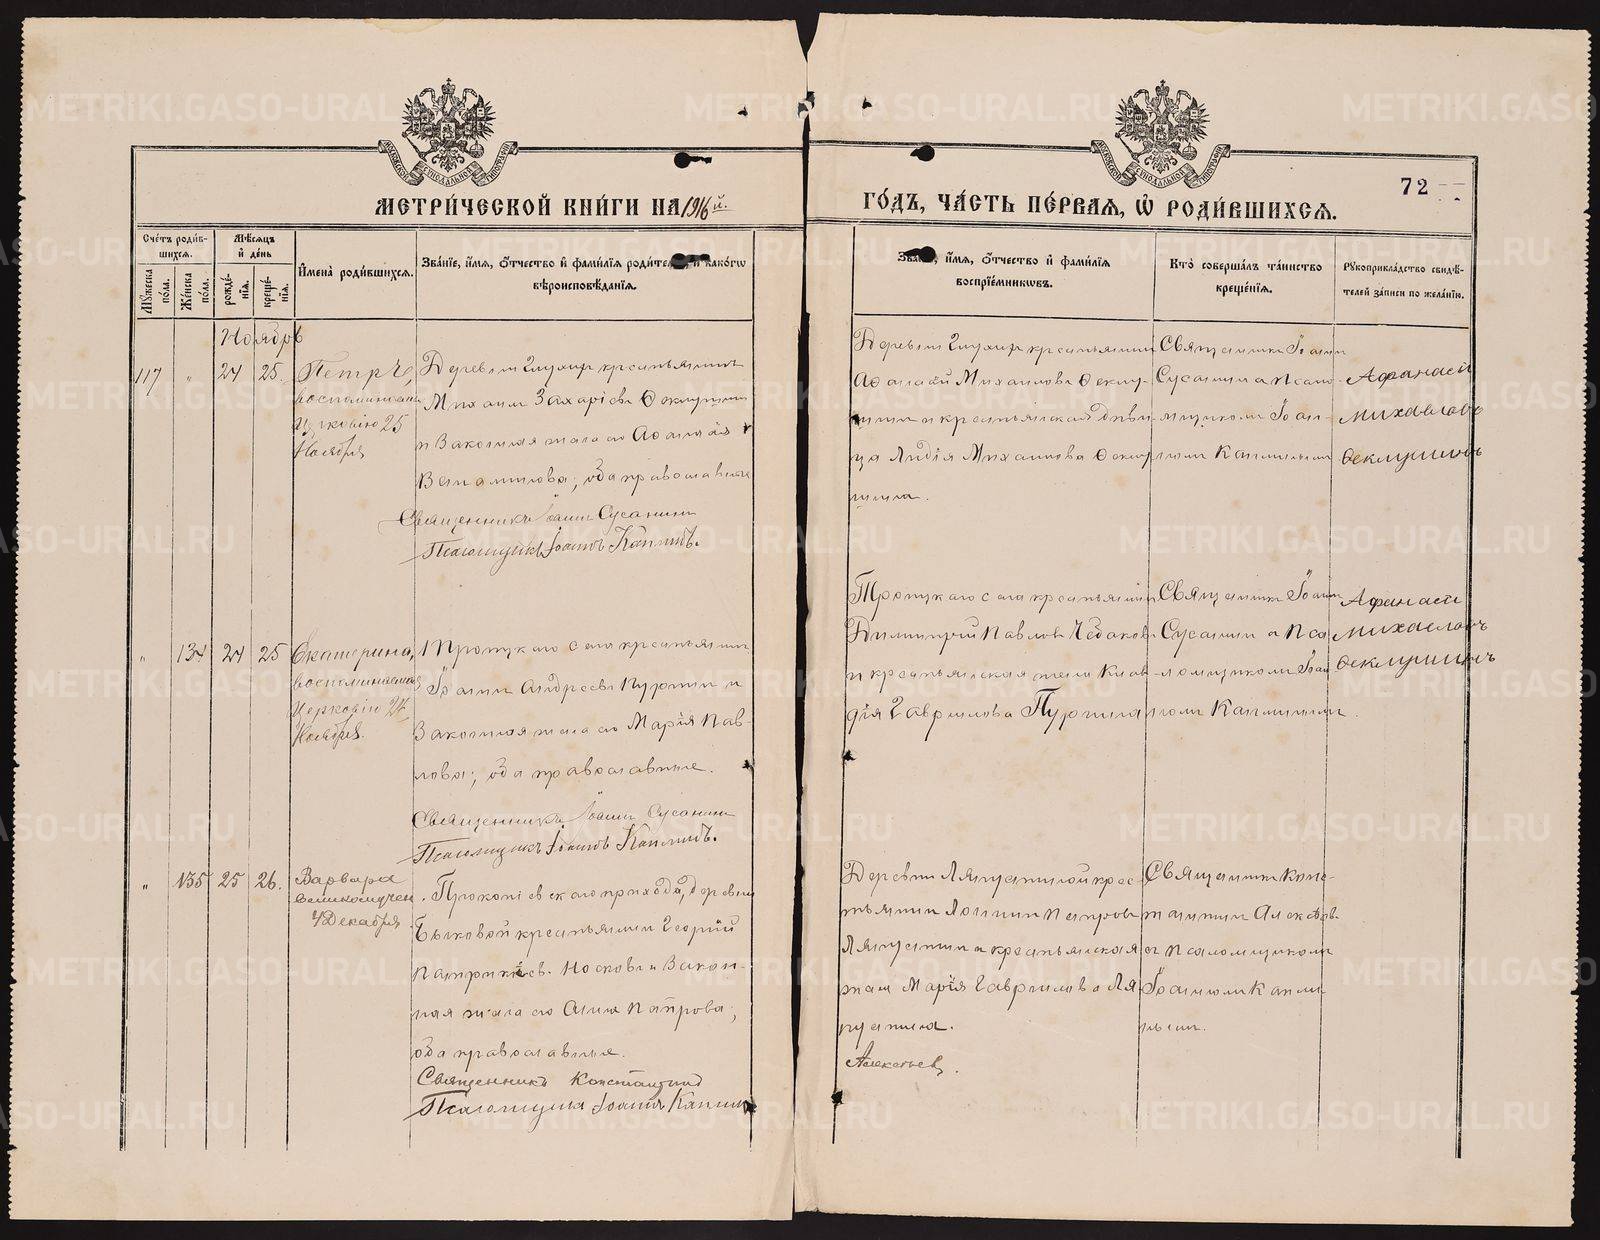 72
МЕТРИ́ЧЕСКОЙ КНИ́ГИ НА 1916 й.
ГО́ДЪ, ЧА́СТЬ ПЕ́РВАЯ, Ѡ҆ РОДИ́ВШИХСЯ.
Сче́тъ роди́в-
шихся.
Му́жеска
по́ла.
Же́нска
по́ла.
Мѣ́сяцъ
и҆ де́нь
рожде́-
нїя.
креще́-
нїя.
И҆мена̀ роди́вшихся.
Зва́нїе, и҆́мя, ѻ҆́тчество и҆ фами́лїя родителей, и҆ како́гѡ
вѣроисповѣ́данїя.
и҆́мя, ѻ҆́тчество и҆ фами́лїя
воспрїе́мникѡвъ.
Кто̀ соверша́лъ та́инство
креще́нїя.
Рꙋкоприкла́дство свидѣ́-
телей за́писи по жела́нїю.
Ноябрь
117
"
24
25.
Петръ,
воспоминаем
Церковію 25
Ноября
Деревни Глухир крестьянинъ
Михаил Захаріевъ Феклушин
и Законная жена его
; оба православные
Священникъ Іоаннъ Сусанинъ
Псаломщикъ Іоаннъ Каплинъ.
Деревни Глухир крестьянин
Михаилова Феклу-
шин и крестьянская дѣви-
ца Лидія Михаилова Феклу
шина.
Священник Іоанн
Сусанин и псало-
мщиком Іоан-
ном Каплиным
Афанасій
Михаиловъ
Феклушинъ
"
134
24
25
Екатерина,
воспоминаемая
Церковію 24
Ноября.
села крестьянин
Іоанн Андреевъ Пургин и
Законная жена его Марія Пав-
лова; оба православные.
Священникъ Іоаннъ Сусанинъ
Псаломщикъ Іоаннъ Каплинъ.
села крестьянин
Димитрій Павловъ
и крестьянская жена Клав-
дія Гаврилова Пургина
Священник Іоанн
Сусанин и Пса-
ломщиком Іоан
ном Каплиным.
Афанасій
Михаиловъ
Феклушинъ
"
135
25
26.
Варвара
великомучен.
4 Декабря
Прокопіевскаго прихода, деревни
Быковой крестьянин Георгій
Патрикіев. Носковъ и Закон-
ная жена его Анна Петрова;
оба православные.
Священникъ Константинъ
Псаломщикъ Іоаннъ Каплинъ
Деревни Ляпустиной крес-
тьянин Логгин Петровъ
Ляпустин и крестьянская
жена Марія Гаврилова Ля-
пустина.
Алексѣевъ.
Священник Конс-
тантин Алексѣев
и псаломщиком
Іоанном Капли-
ным.
METRIKI.GASO-URAL.RU